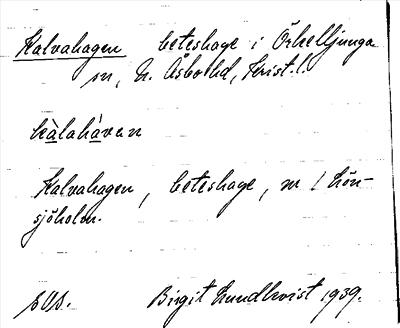 Kalvahagen beteshage i Örkelljunga
sn, N. Åsbo hd, Krist. l.
kàlahàvan
Kalvahagen, beteshage, nr 1 Hön-
sjöholm.
s. 0/s.
Birgit Lundkvist 1939.